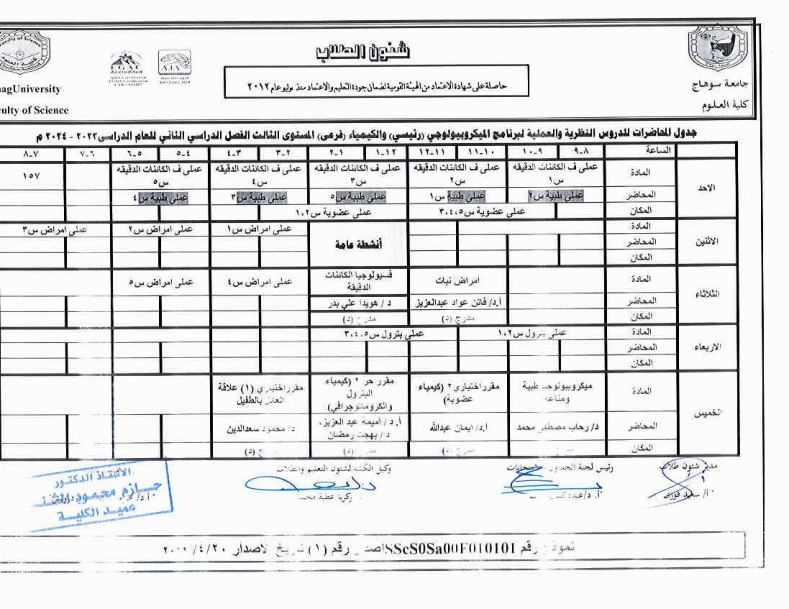 شئون الطلاب
حاصلة على شهادة الاعتماد من الهيئة القومية لضمان جودة التعليم والاعتماد منذ يوليو عام ٢٠١٢
جامعة سوهاج
كلية العلوم
University
Faculty of Science
جدول المحاضرات للدروس النظرية والعملية لبرنامج الميكروبيولوجي (رئيسي) والكيمياء (فرعى) المستوى الثالث الفصل الدراسي الثاني للعام الدراسى ٢٠٢٣ - ٢٠٢٤ م
الساعة ٨-٩ ٩-١٠ ١٠-١١ ١١-١٢ ١٢-١ ١-٢ ٢-٣ ٣-٤ ٤-٥ ٥-٦ ٦-٧ ٧-٨
الاحد
المادة عملى ف الكائنات الدقيقه س١ عملى ف الكائنات الدقيقه س٢ عملى ف الكائنات الدقيقه س٣ عملى ف الكائنات الدقيقه س٤ عملى ف الكائنات الدقيقه س٥ ١٥٧
المحاضر عملى طبية س٢ عملى طبية س١ عملى طبية س٥ عملى طبية س٣ عملى طبية س٤
المكان عملى عضوية س٣،٤،٥ عملى عضوية س١،٢
الاثنين
المادة أنشطة عامة عملى امراض س١ عملى امراض س٢ عملى امراض س٣
المحاضر
المكان
الثلاثاء
المادة امراض نبات فسيولوجيا الكائنات الدقيقة عملى امراض س٤ عملى امراض س٥
المحاضر أ.د/ فاتن عواد عبدالعزيز د / هويدا علي بدر
المكان مدرج (د) مدرج (د)
الاربعاء
المادة عملى بترول س١،٢ عملى بترول س٣،٤،٥
المحاضر
المكان
الخميس
المادة ميكروبيولوجيا طبية ومناعة مقرر اختيارى ٢ (كيمياء عضوية) مقرر حر ٢ (كيمياء البترول والكروماتوجرافي) مقرر اختياري (١) علاقة العائل بالطفيل
المحاضر د/ رحاب مصطفى محمد أ.د/ ايمان عبدالله أ.د / أميمة عبد العزيز، د / بهجت رمضان د/ محمود سعدالدين
المكان
مدير شئون طلاب
رئيس لجنة الجداول
وكيل الكلية لشئون التعليم والطلاب
الأستاذ الدكتور
عميد الكلية
نموذج رقم SScS0Sa00F010101 اصدار رقم (١) تاريخ الاصدار